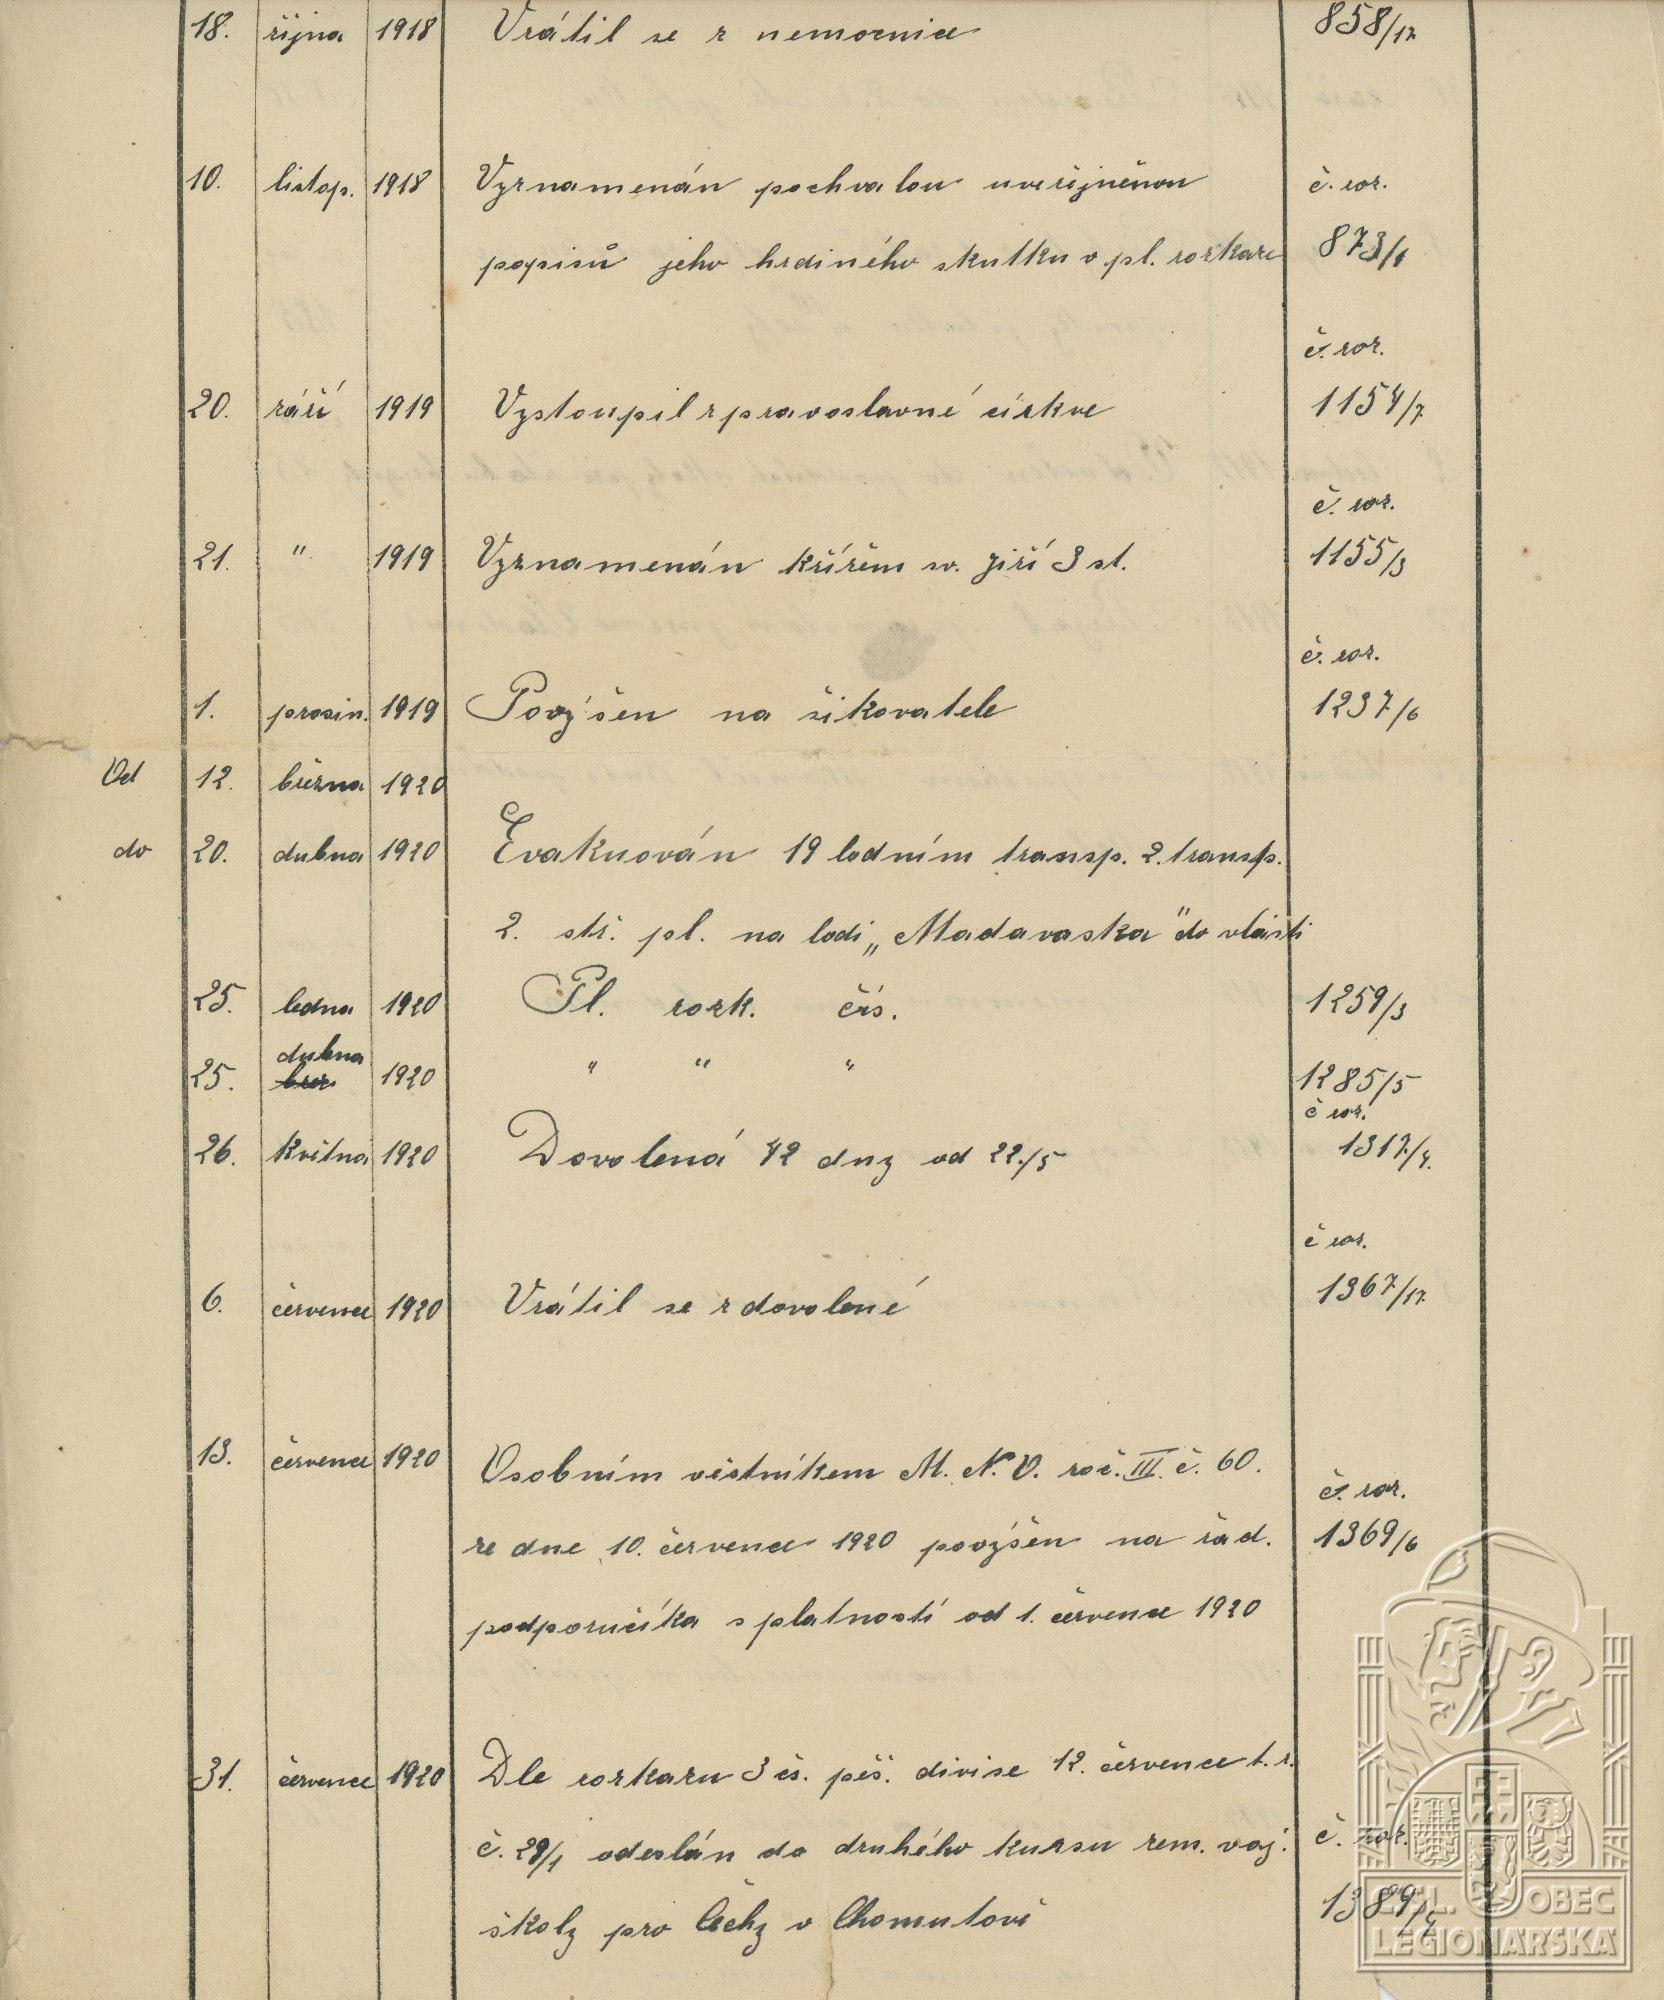 18. října 1918 Vrátil se z nemocnice 858/17
10. listop. 1918 Vyznamenán pochvalou uveřejněnou č. roz.
popisů jeho hrdiného skutku v pl. rozkaze 873/1
č. roz.
20. září 1919 Vystoupil z pravoslavné církve 1154/7
č. roz.
21. " 1919 Vyznamenán křížem sv. Jiří 3 st. 1155/3
č. roz.
1. prosin. 1919 Povýšen na šikovatele 1237/6
Od 12. března 1920
do 20. dubna 1920 Evakuován 19 lodním transp. 2. transp.
2. stř. pl. na lodi „Madavaska" do vlasti
25. ledna 1920 Pl. rozk. čís. 1259/3
dubna
25. 1920 " " " 1285/5
č roz.
26. května 1920 Dovolená 42 dny od 22./5 1317/4.
č roz.
6. července 1920 Vrátil se z dovolené 1367/17
13. července 1920 Osobním věstníkem M. N. O. roč. III. č. 60.
č. roz.
ze dne 10. července 1920 povýšen na řád. 1369/6
podporučíka s platností od 1. července 1920
31. července 1920 Dle rozkazu 3 čs. pěš. divise 12. července t. r.
č. 29/1 odeslán do druhého kursu zem. voj. č. roz.
školy pro Čechy v Chomutově 1389/4
ČSL. OBEC
LEGIONÁŘSKÁ